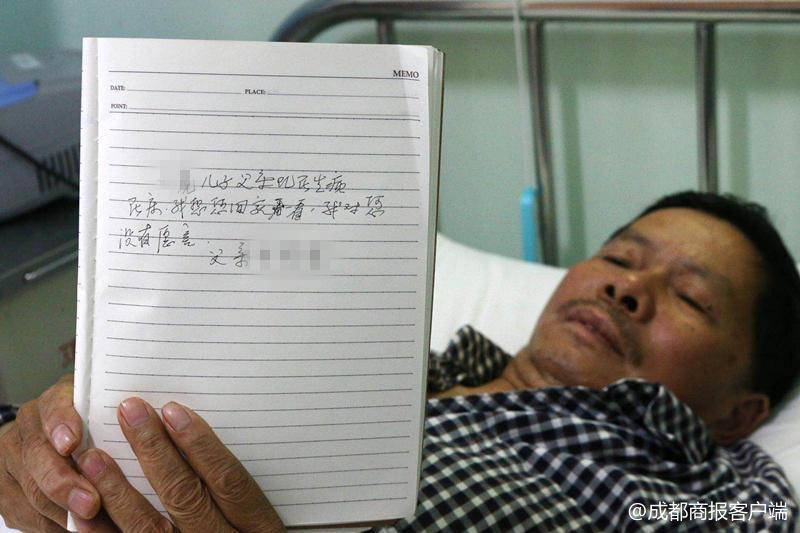 MEMO
DATE: PLACE:
POINT:
儿子父亲现在生病
我想您回家看看，我对您
没有恶意．
父亲
@成都商报客户端